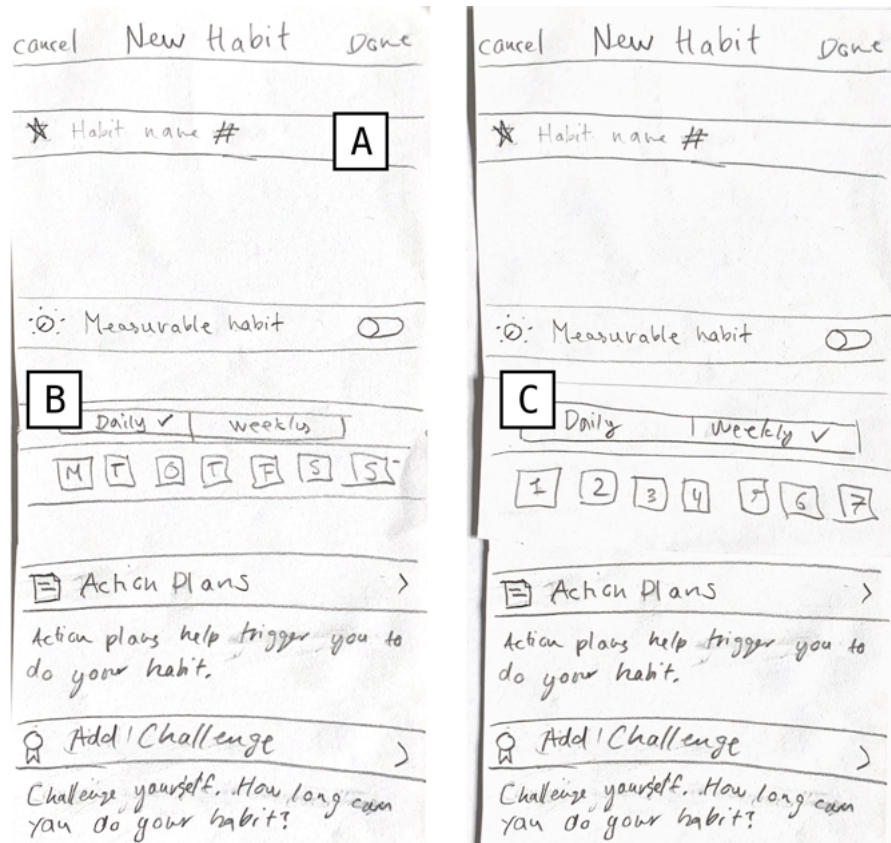 cancel New Habit Done
Habit name #
A
Measurable habit
B
Daily ✓ weekly
M T O T F S S
Action Plans >
Action plans help trigger you to
do your habit.
Add Challenge >
Challenge yourself. How long can
you do your habit?
cancel New Habit Done
Habit name #
Measurable habit
C
Daily weekly ✓
1 2 3 4 5 6 7
Action Plans >
Action plans help trigger you to
do your habit.
Add Challenge >
Challenge yourself. How long can
you do your habit?